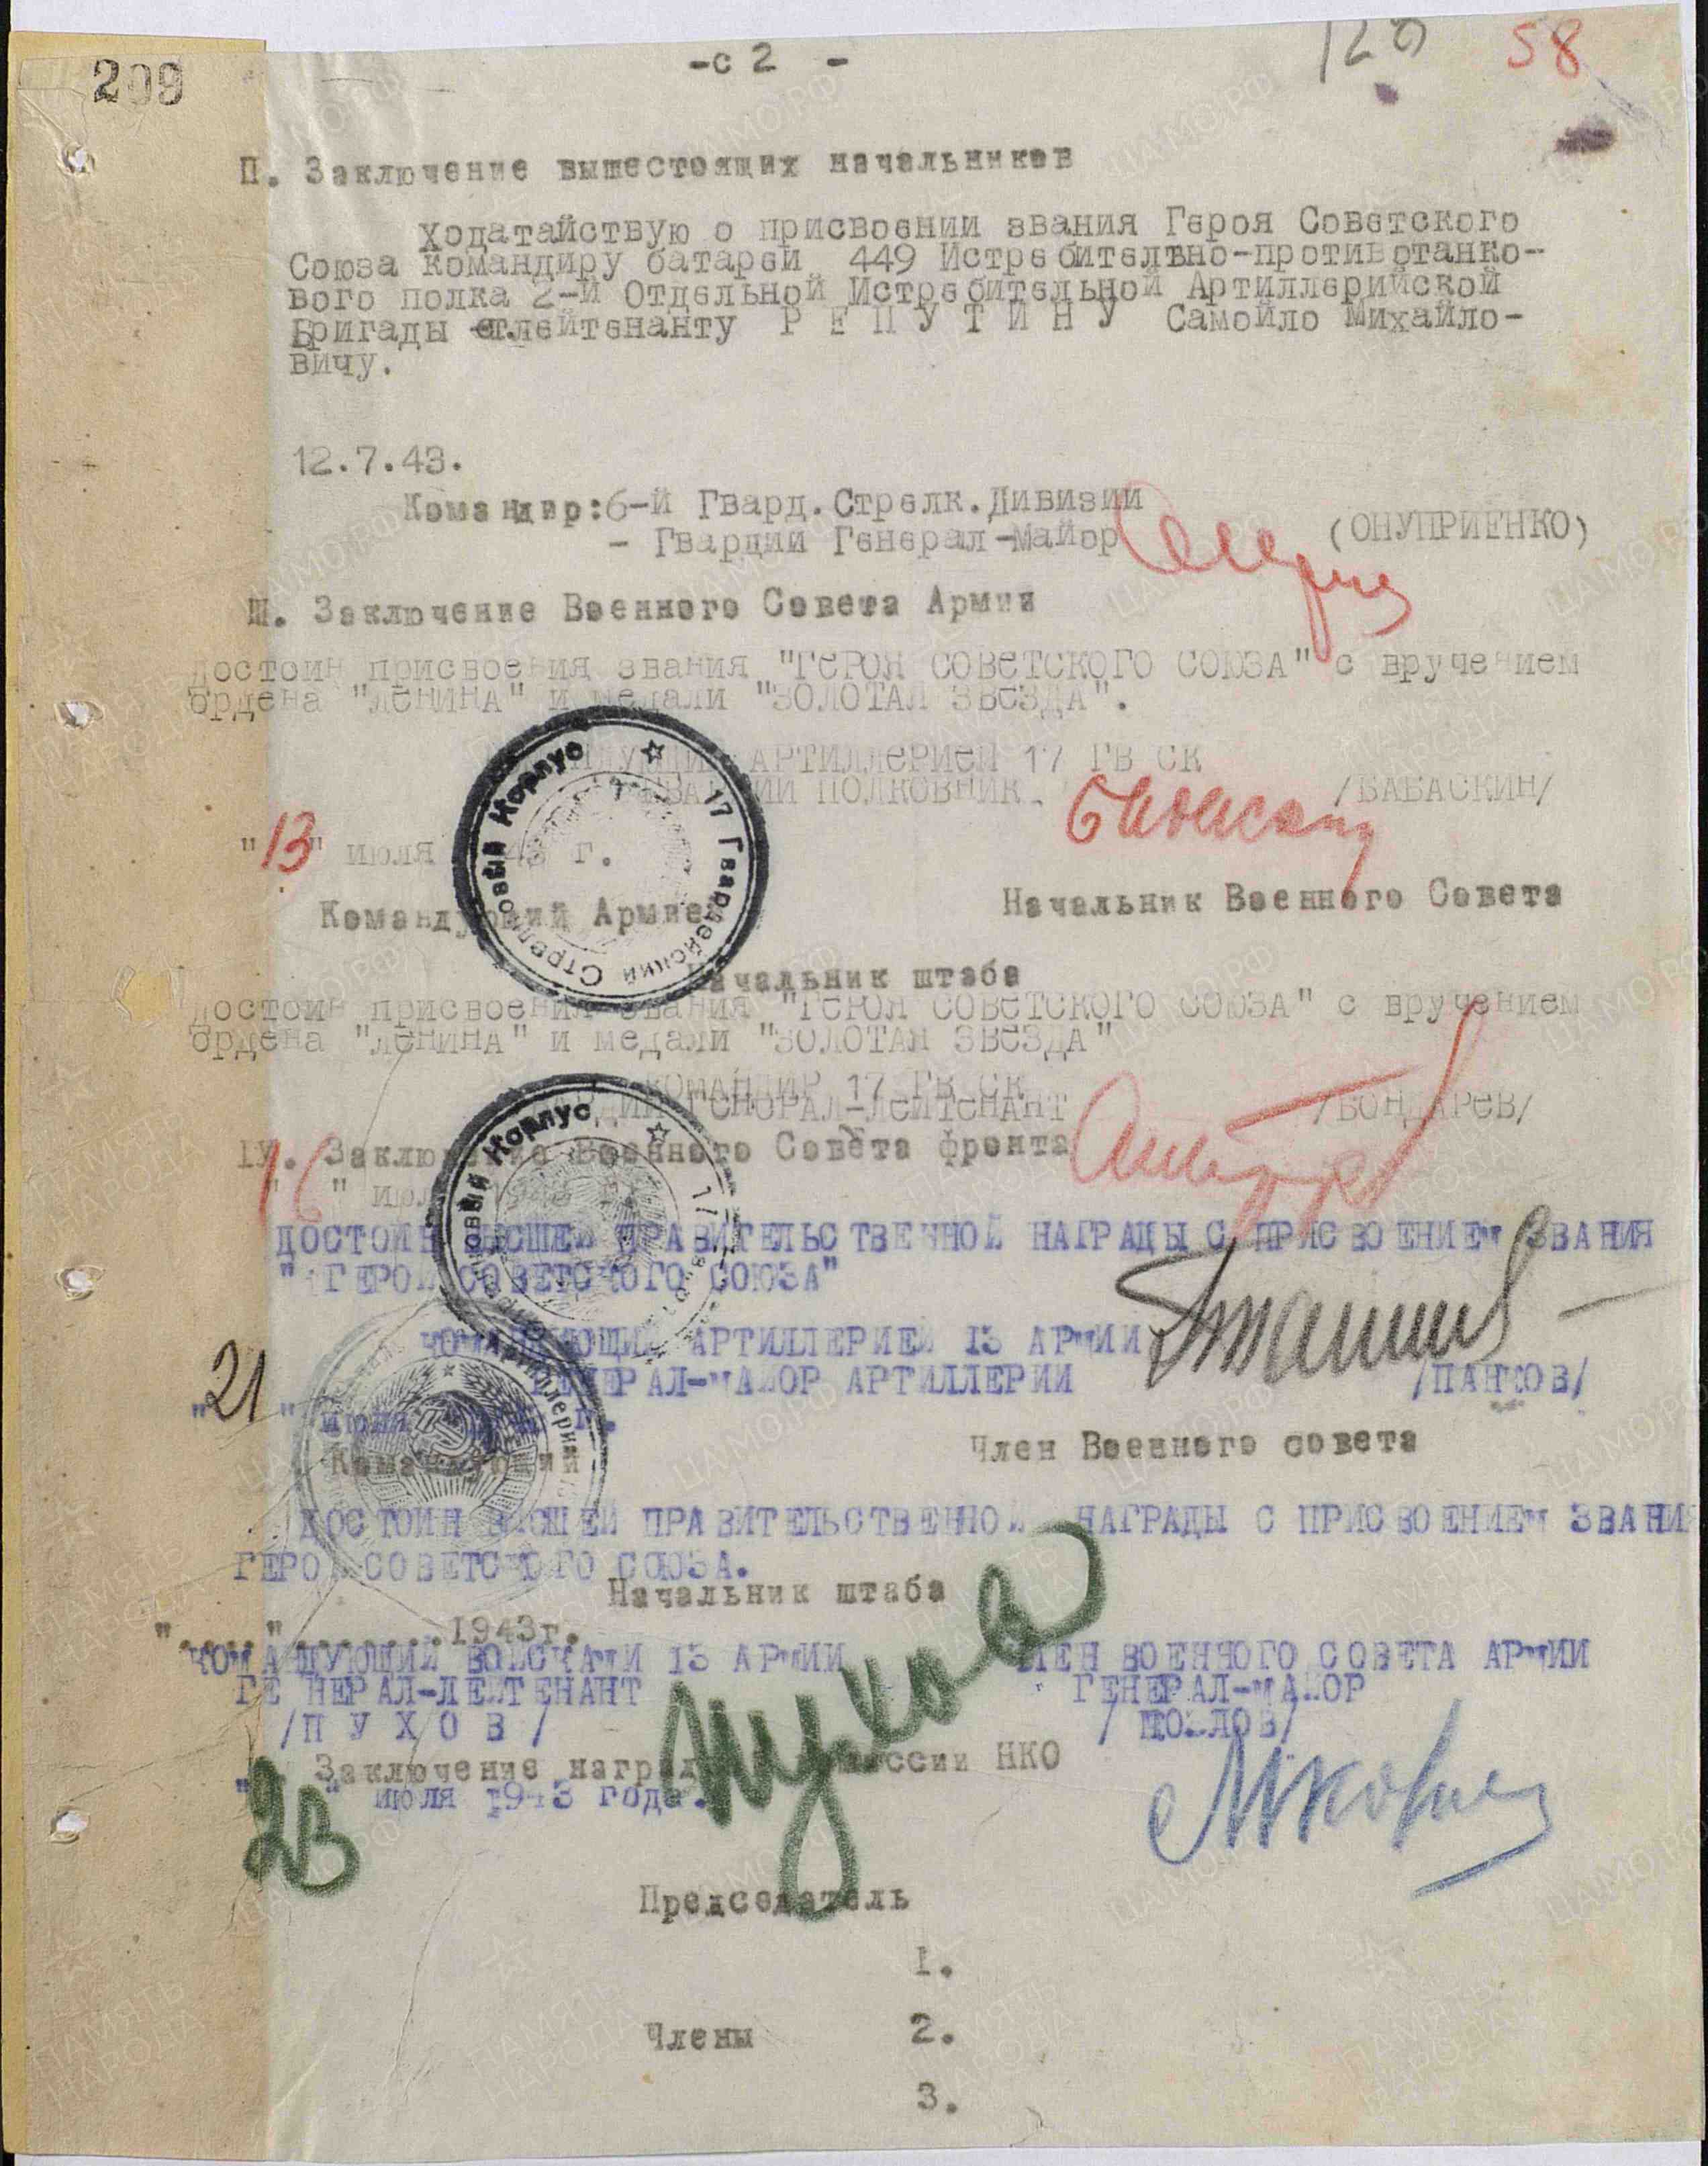 209
- с 2 -
58
П. Заключение вышестоящих начальников
Ходатайствую о присвоении звания Героя Советского
Союза командиру батареи 449 Истребительно-противотанко-
вого полка 2-й Отдельной Истребительной Артиллерийской
Бригады ст лейтенанту Р Е П У Т И Н У Самойло Михайло-
вичу.
12.7.43.
Командир: 6-й Гвард. Стрелк. Дивизии
- Гвардии Генерал-майор (ОНУПРИЕНКО)
Ш. Заключение Военного Совета Армии
достоин присвоения звания "ГЕРОЯ СОВЕТСКОГО СОЮЗА" с вручением
ордена "ЛЕНИНА" и медали "ЗОЛОТАЯ ЗВЕЗДА".
АРТИЛЛЕРИЕЙ 17 ГВ СК
ПОЛКОВНИК /БАБАСКИН/
"13" июля г.
Командующий Армией Начальник Военного Совета
Начальник штаба
достоин присвоения звания "ГЕРОЯ СОВЕТСКОГО СОЮЗА" с вручением
ордена "ЛЕНИНА" и медали "ЗОЛОТАЯ ЗВЕЗДА"
КОМАНДИР 17 ГВ СК
ГЕНЕРАЛ-ЛЕЙТЕНАНТ /БОНДАРЕВ/
1У. Заключение Военного Совета фронта
16 " июля
ДОСТОИН ВЫСШЕЙ ПРАВИТЕЛЬСТВЕННОЙ НАГРАДЫ С ПРИСВОЕНИЕМ ЗВАНИЯ
"ГЕРОЙ СОВЕТСКОГО СОЮЗА"
КОМАНДУЮЩИЙ АРТИЛЛЕРИЕЙ 13 АРМИИ
ГЕНЕРАЛ-МАЙОР АРТИЛЛЕРИИ /ПАНКОВ/
"21" июля г.
Командующий Член Военного совета
ДОСТОИН ВЫСШЕЙ ПРАВИТЕЛЬСТВЕННОЙ НАГРАДЫ С ПРИСВОЕНИЕМ ЗВАНИЯ
ГЕРОЯ СОВЕТСКОГО СОЮЗА.
Начальник штаба
"....".........1943г.
КОМАНДУЮЩИЙ ВОЙСКАМИ 13 АРМИИ ЧЛЕН ВОЕННОГО СОВЕТА АРМИИ
ГЕНЕРАЛ-ЛЕЙТЕНАНТ ГЕНЕРАЛ-МАЙОР
/П У Х О В/ /КОЗЛОВ/
Заключение наградной комиссии НКО
"23" июля 1943 года.
Председатель
1.
Члены 2.
3.
17 Гвардейский Стрелковый Корпус